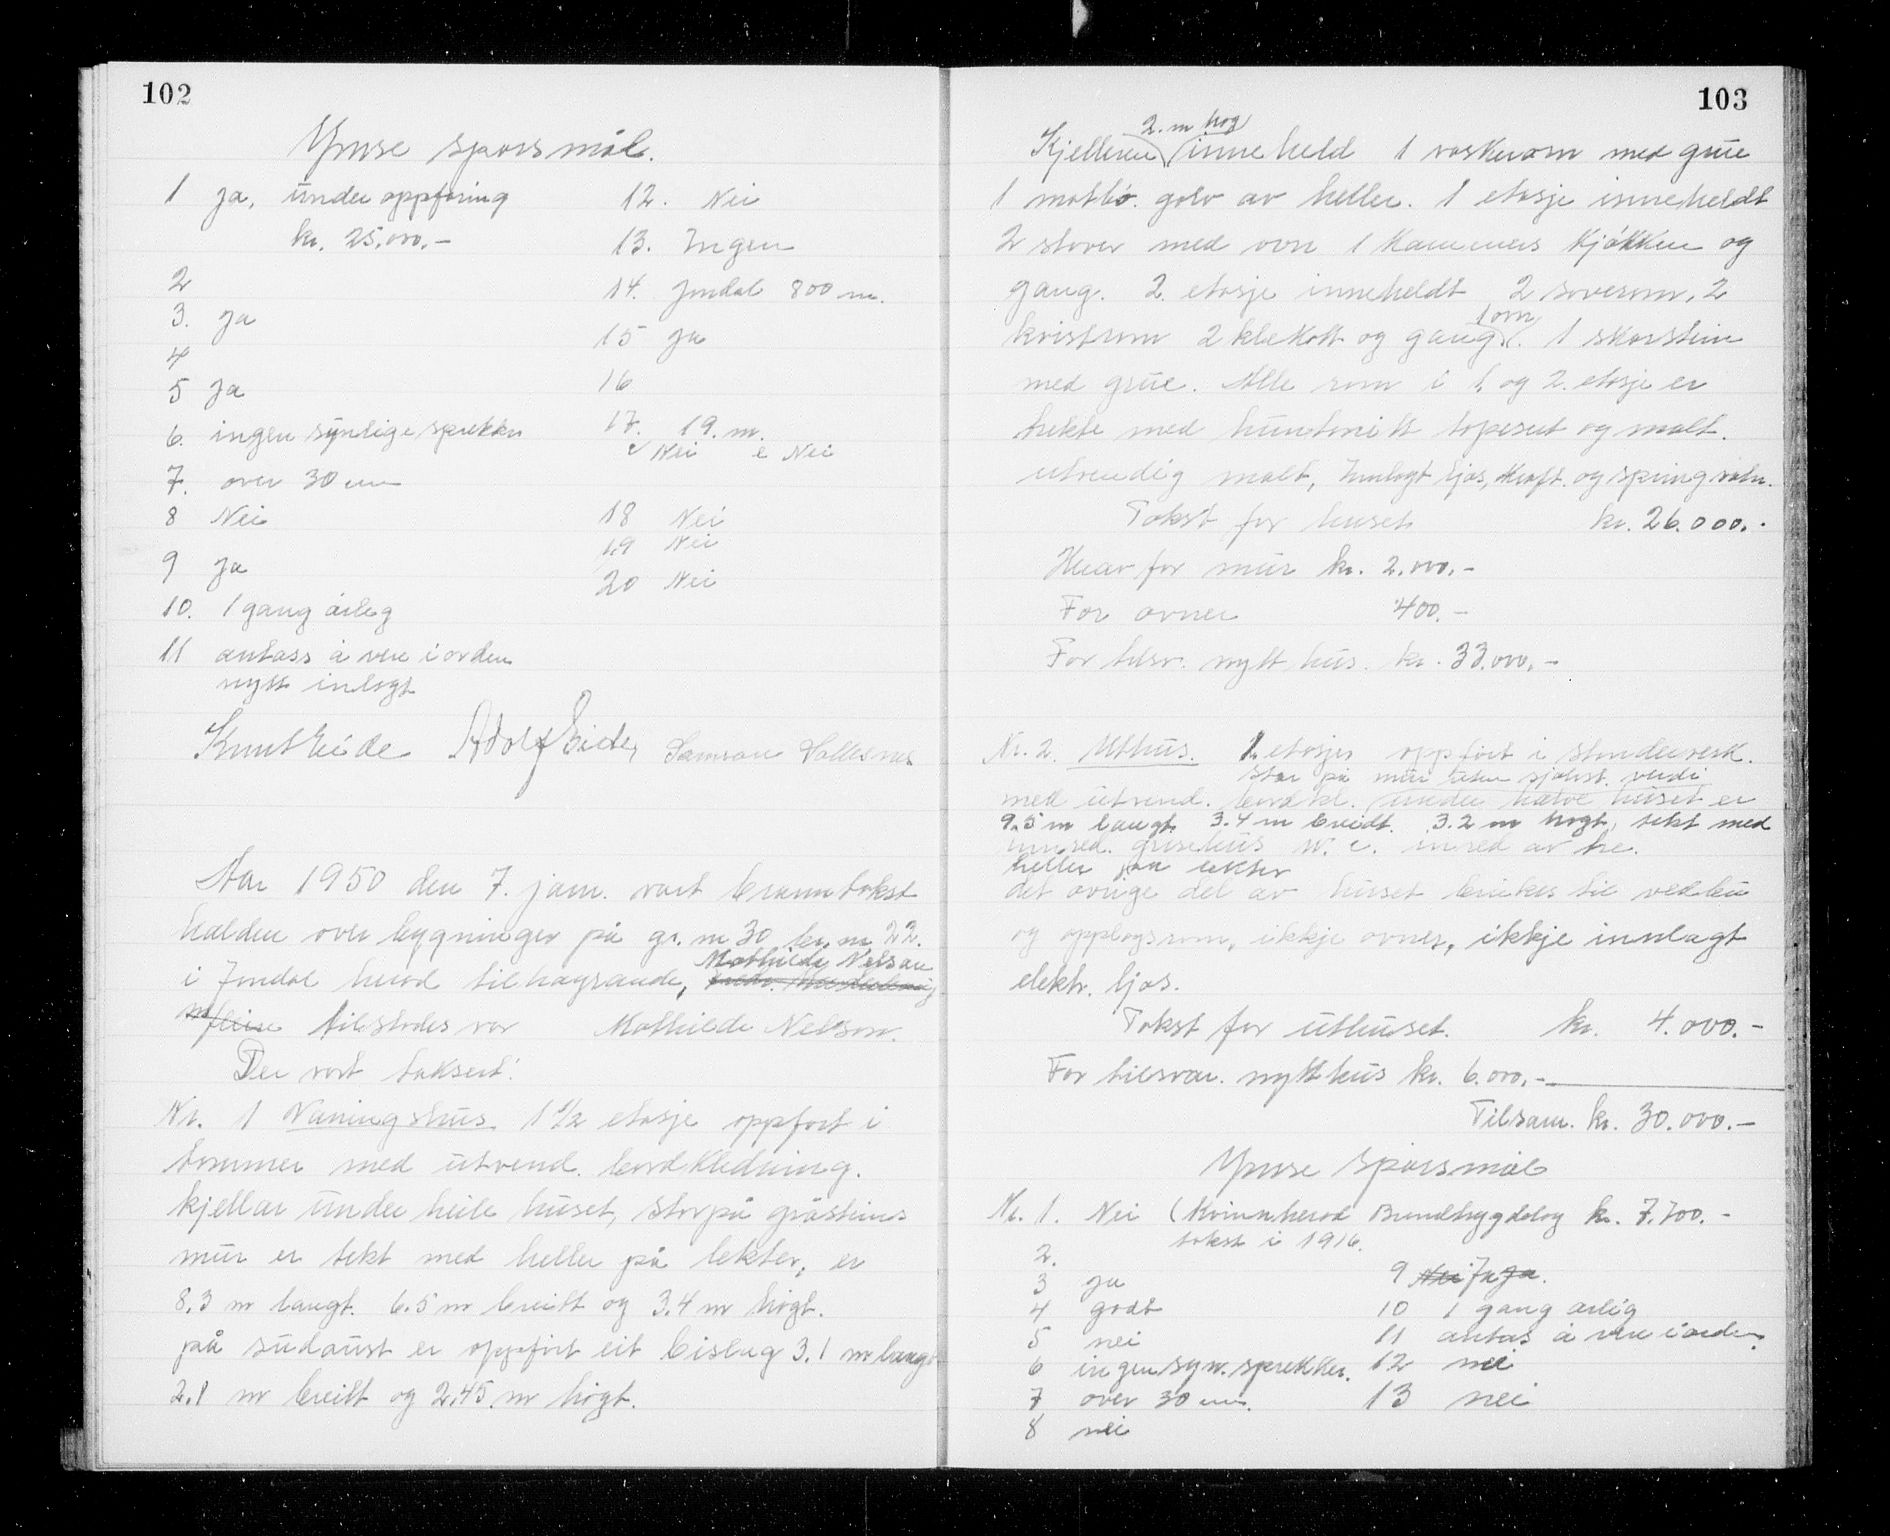 102
Ymse spørsmål.
1 Ja, under oppføring
kr. 25.000.-
2
3. Ja
4
5 Ja
6. ingen synlige sprekker
7. over 30 cm
8 Nei
9 Ja
10. 1 gang årleg
11 antass å vere i orden
nytt inlagt
12. Nei
13. Ingen
14. Jondal 800 m.
15 Ja
16
17. 19. m.
Nei e Nei
18 Nei
19 Nei
20 Nei
Knut Eide Adolf Eide, Samson
Aar 1950 den 7. jan. vart branntakst
halden over bygningar på gr. nr 30 br. nr 22.
Mathilde Nelson
i Jondal herad tilhøyrande,
tilstades var Mathilde Nelson.
Der vart taksert:
Nr. 1 Våningshus 1 1/2 etasje oppført i
tømmer med utvend. bordkledning.
kjellar under heile huset, står på gråsteins
mur er tekt med heller på lekter, er
8.3 m langt. 6.5 m breitt og 3.4 m høgt.
på sudaust er oppført eit bislag 3.1 m langt
2.1 m breitt og 2.45 m høgt.
103
2. m høg
Kjelleren inneheld 1 vaskerom med grue
1 matbo. golv av heller. 1 etasje inneheldt
2 stover med ovn 1 kammers kjøkken og
gang. 2. etasje inneheldt 2 soverom, 2
1 ovn
kvistrom 2 klekott og gang. 1 skorstein
med grue. Alle rom i 1. og 2. etasje er
trekte med huntonitt tapesert og malt.
utvendig malt, Innlagt ljos, kraft. og springvatn.
Takst for huset kr. 26.000.-
Herav for mur kr. 2.000.-
For ovner 400.-
For tilsv. nytt hus. kr. 33.000.-
Nr. 2. Uthus. 1. etasjes oppført i stenderverk.
står på mur uten sjølvst. verdi
med utvend. bordkl. under halve huset er
9.5 m langt. 3.4 m breidt. 3.2 m høgt, tekt med
innred. grisehus w. c. innred av tre.
heller på lekter
det øvrige del av huset brukes til vedbu
og opplagsrom, ikkje ovner, ikkje innlagt
elektr. ljos.
Takst for uthuset. kr. 4.000.-
For tilsvar. nytt hus kr. 6.000.-
Tilsam. kr. 30.000.-
Ymse spørsmål
Nr. 1. Nei (Kvinnherad Brandtrygdelag kr. 7.700.-
takst i 1916.
2.
3 ja
4 godt
5 nei
6 ingen syn. sprekker.
7 over 30 cm.
8 nei
9 Nei Ja Ja.
10 1 gang årlig
11 antas å vere i orden.
12 nei
13 nei